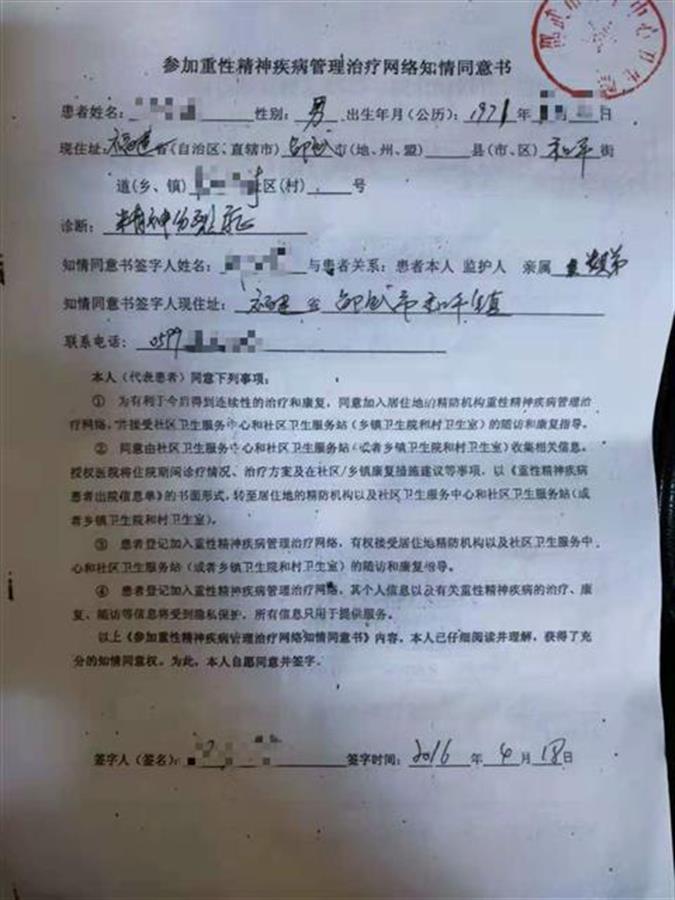 参加重性精神疾病管理治疗网络知情同意书
患者姓名: 性别: 男 出生年月(公历): 1971 年 日
现住址: 福建省(自治区、直辖市) 邵武市(地、州、盟) 县(市、区) 和平街
道(乡、镇) 社区(村) 号
诊断: 精神分裂症
知情同意书签字人姓名: 与患者关系: 患者本人 监护人 亲属
知情同意书签字人现住址: 福建省 邵武市和平镇
联系电话: 0599
本人(代表患者)同意下列事项:
① 为有利于今后得到连续性的治疗和康复,同意加入居住地的精防机构重性精神疾病管理治
疗网络,并接受社区卫生服务中心和社区卫生服务站(乡镇卫生院和村卫生室)的随访和康复指导。
② 同意由社区卫生服务中心和社区卫生服务站(或者乡镇卫生院和村卫生室)收集相关信息。
授权医院将住院期间诊疗情况、治疗方案及在社区/乡镇康复措施建议等事项,以《重性精神疾病
患者出院信息单》的书面形式,转至居住地的精防机构以及社区卫生服务中心和社区卫生服务站(或
者乡镇卫生院和村卫生室)。
③ 患者登记加入重性精神疾病管理治疗网络,有权接受居住地精防机构以及社区卫生服务中
心和社区卫生服务站(或者乡镇卫生院和村卫生室)的随访和康复指导。
④ 患者登记加入重性精神疾病管理治疗网络,其个人信息以及有关重性精神疾病的治疗、康
复、随访等信息将受到隐私保护,所有信息只用于提供服务。
以上《参加重性精神疾病管理治疗网络知情同意书》内容,本人已仔细阅读并理解,获得了充
分的知情同意权。为此,本人自愿同意并签字。
签字人(签名): 签字时间: 2016 年 4 月 18 日